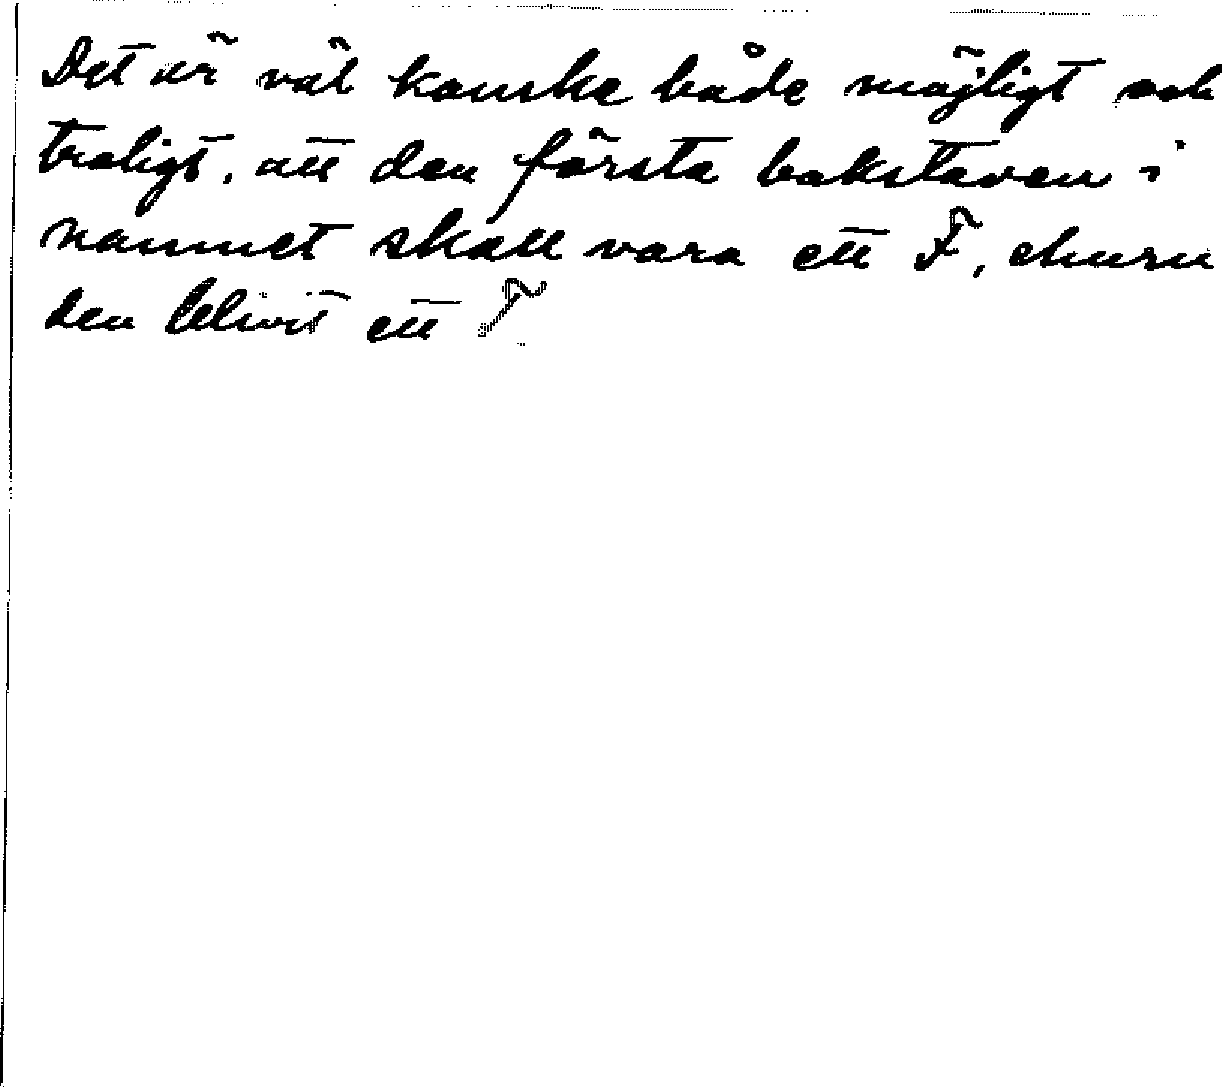 Det är väl kanske både möjligt och
troligt, att den första bokstaven i
namnet skall vara ett F, ehuru
den blivit ett T